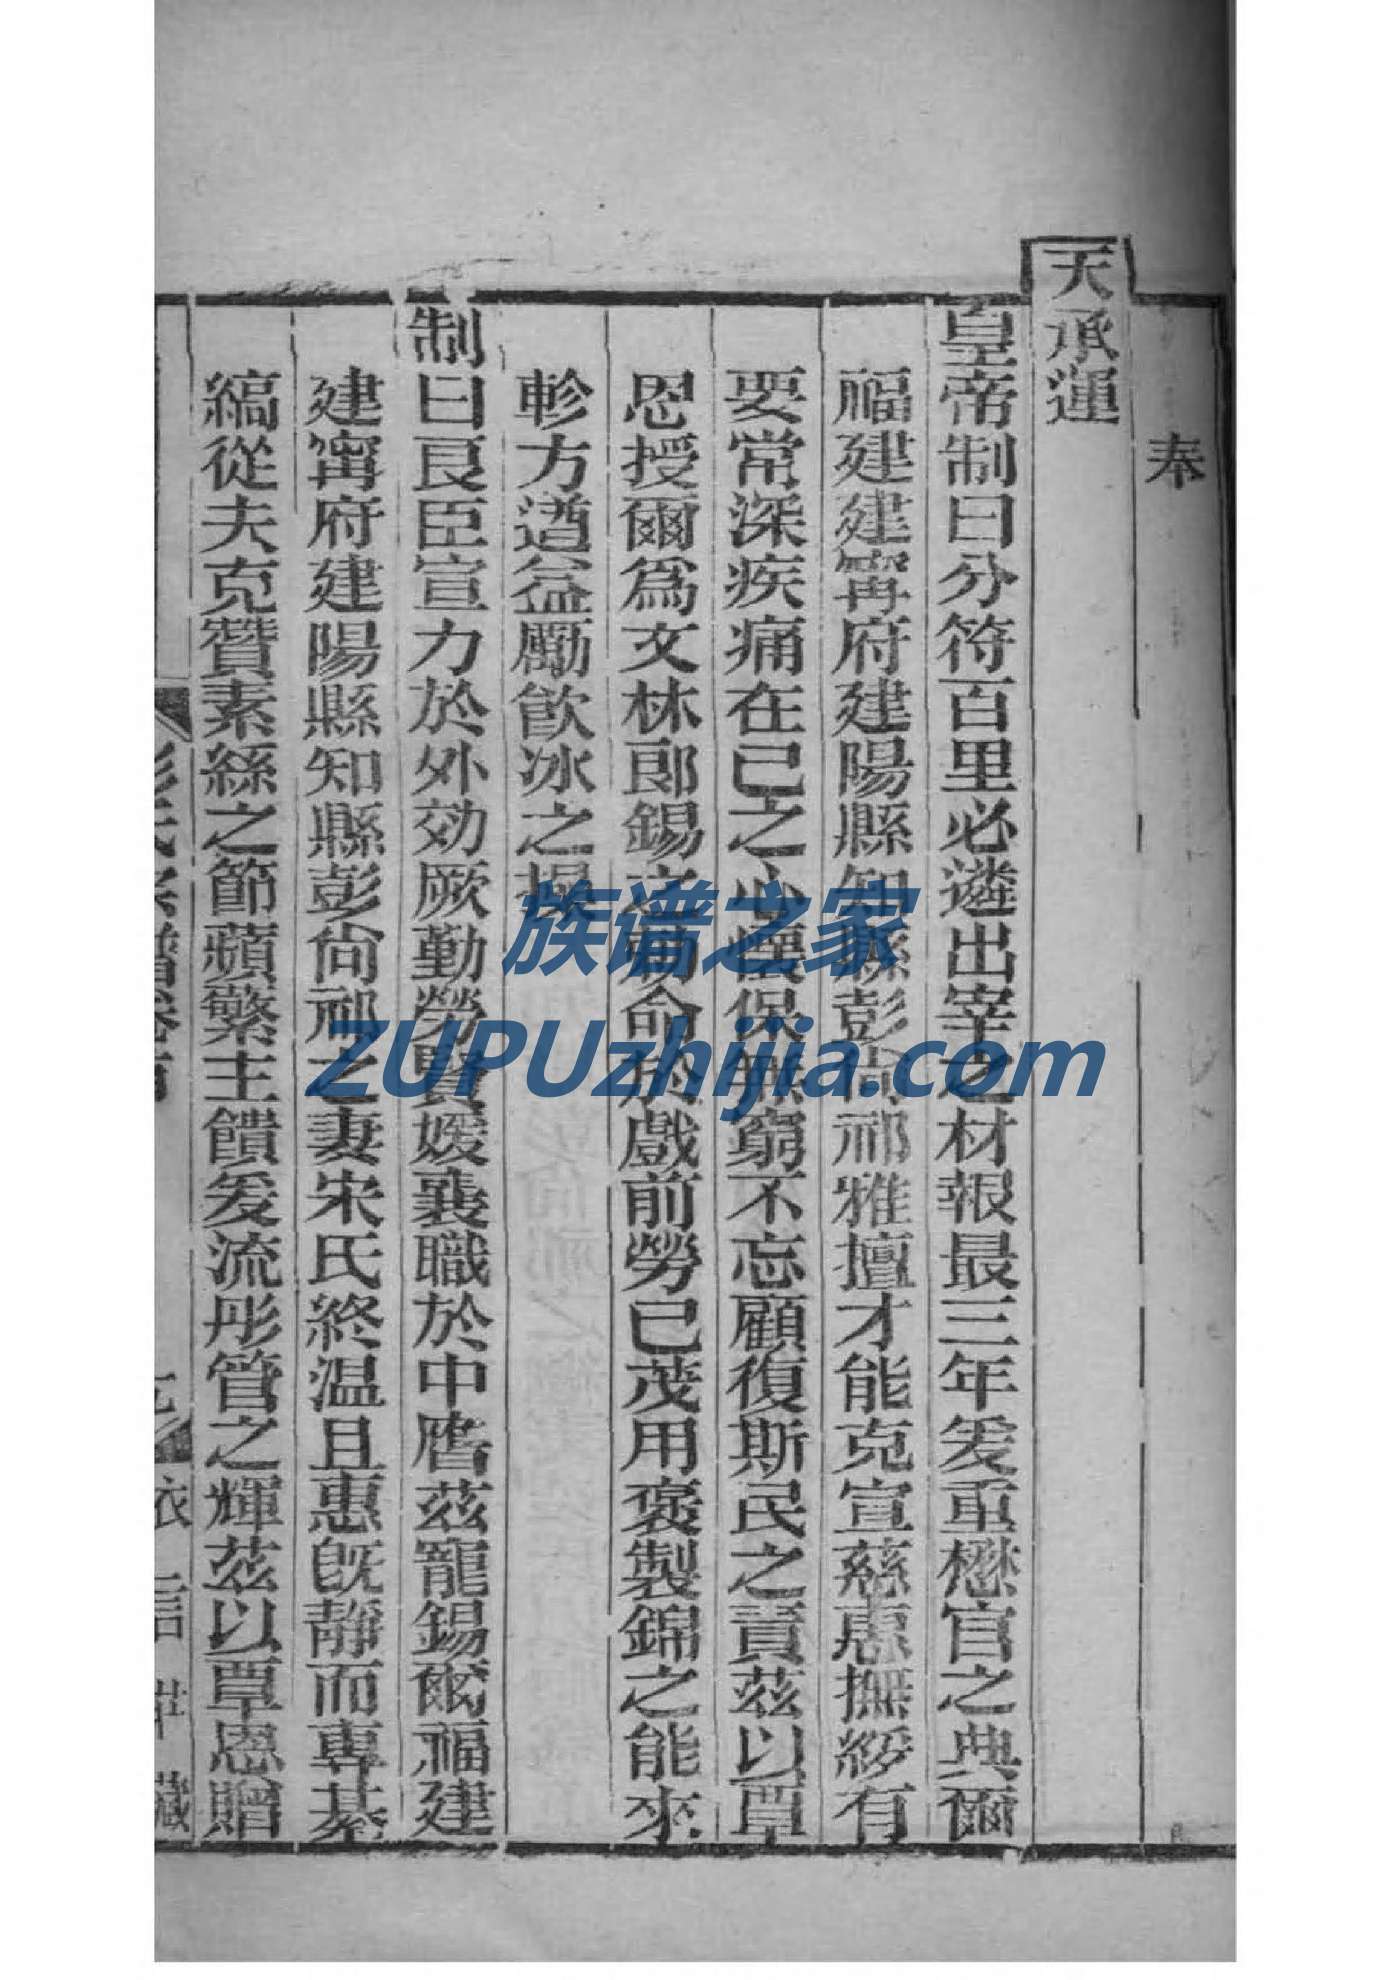 奉
天承運
皇帝制曰分符百里必遴出宰之材報最三年爰重懋官之典爾
福建建甯府建陽縣知縣彭尙祁雅擅才能克宣慈惠撫綏有
要常深疾痛在己之心懷保無窮不忘顧復斯民之責茲以覃
恩授爾爲文林郎錫之勅命於戲前勞已茂用褒製錦之能來
軫方遒益勵飮冰之操
制曰良臣宣力於外効厥勤勞賢媛襄職於中膺茲寵錫爾福建
建甯府建陽縣知縣彭尙祁之妻宋氏終温且惠旣靜而專綦
縞從夫克贊素絲之節蘋蘩主饋爰流彤管之輝茲以覃恩贈
彭氏宗譜卷首
依言世藏
族谱之家
ZUPUzhijia.com